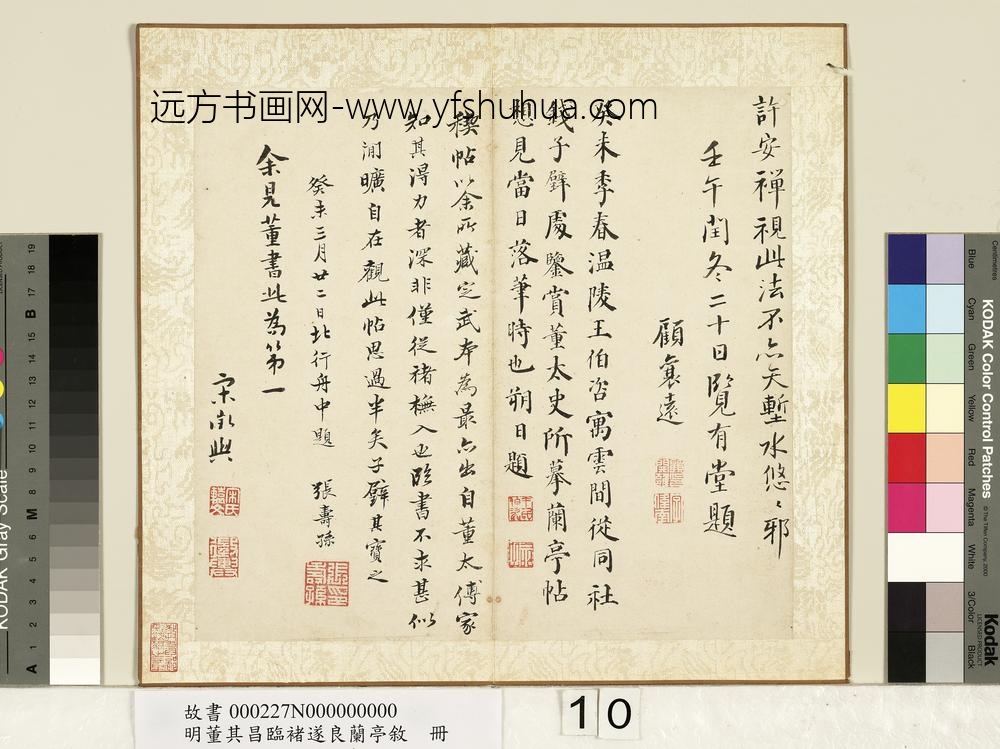 許安禪視此法不亦矢塹水悠〻邪
壬午閏冬二十日覽有堂題
顧襄遠
癸未季春温陵王伯咨寓雲間從同社
錢子璧處鑒賞董太史所摹蘭亭帖
想見當日落筆時也朔日題
稧帖以余所藏定武本為最亦出自董太傅家
知其淂力者深非僅從褚橅入也臨書不求甚似
乃閒曠自在觀此帖思過半矣子璧其寶之
癸未三月廿二日北行舟中題 張壽孫
余見董書此為第一
宋徵輿
远方书画网-www.yfshuhua.com
故書 000227N000000000
明董其昌臨褚遂良蘭亭敘 冊
10
KODAK Gray Scale
A 1 2 3 4 5 6 M 8 9 10 11 12 13 14 15 B 17 18 19
KODAK Color Control Patches
© The Tiffen Company, 2000
Kodak
LICENSED PRODUCT
Centimetres
Blue
Cyan
Green
Yellow
Red
Magenta
White
3/Color
Black